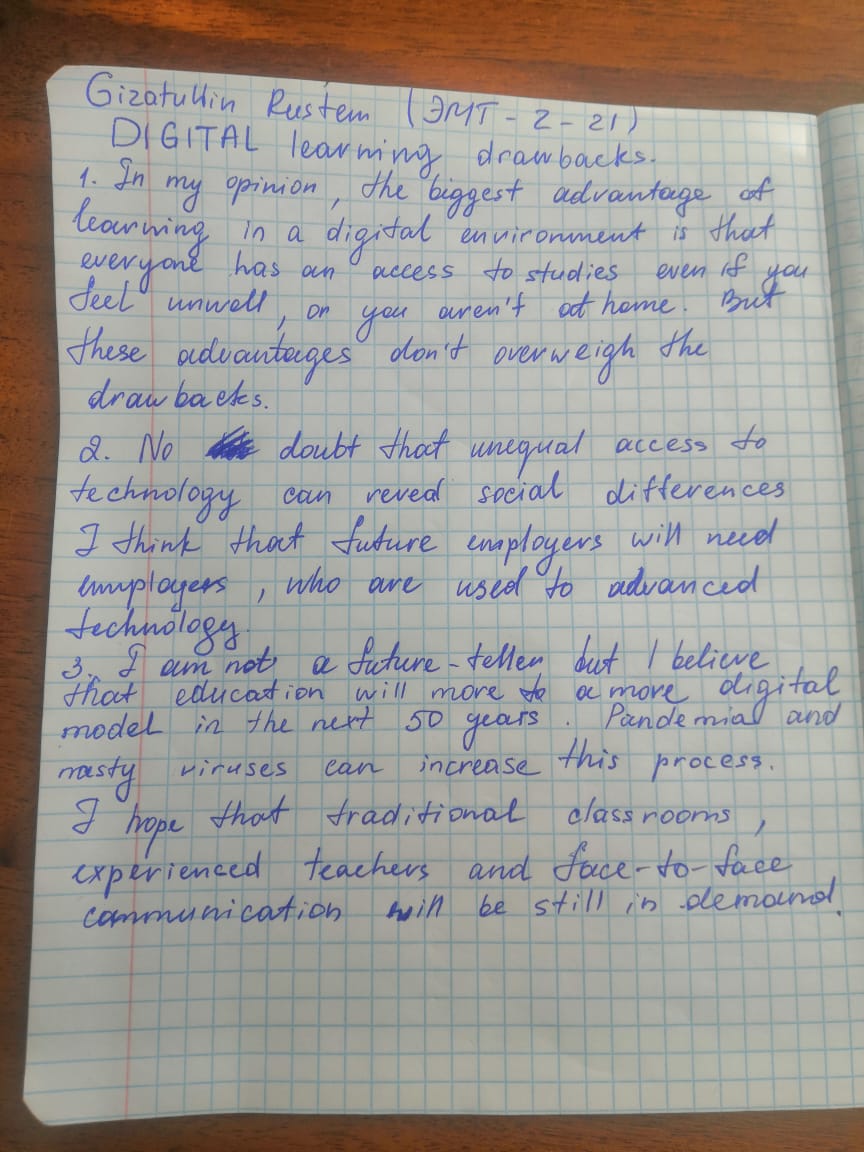 Gizatullin Rustem (ЭМТ-2-21)
DIGITAL learning drawbacks.
1. In my opinion, the biggest advantage of
learning in a digital environment is that
everyone has an access to studies even if you
feel unwell, or you aren't at home. But
these advantages don't overweigh the
drawbacks.
2. No doubt that unequal access to
technology can reveal social differences
I think that future employers will need
employers, who are used to advanced
technology.
3. I am not a future-teller but I believe
that education will more to a more digital
model in the next 50 years. Pandemia and
nasty viruses can increase this process.
I hope that traditional classrooms,
experienced teachers and face-to-face
communication will be still in demand.